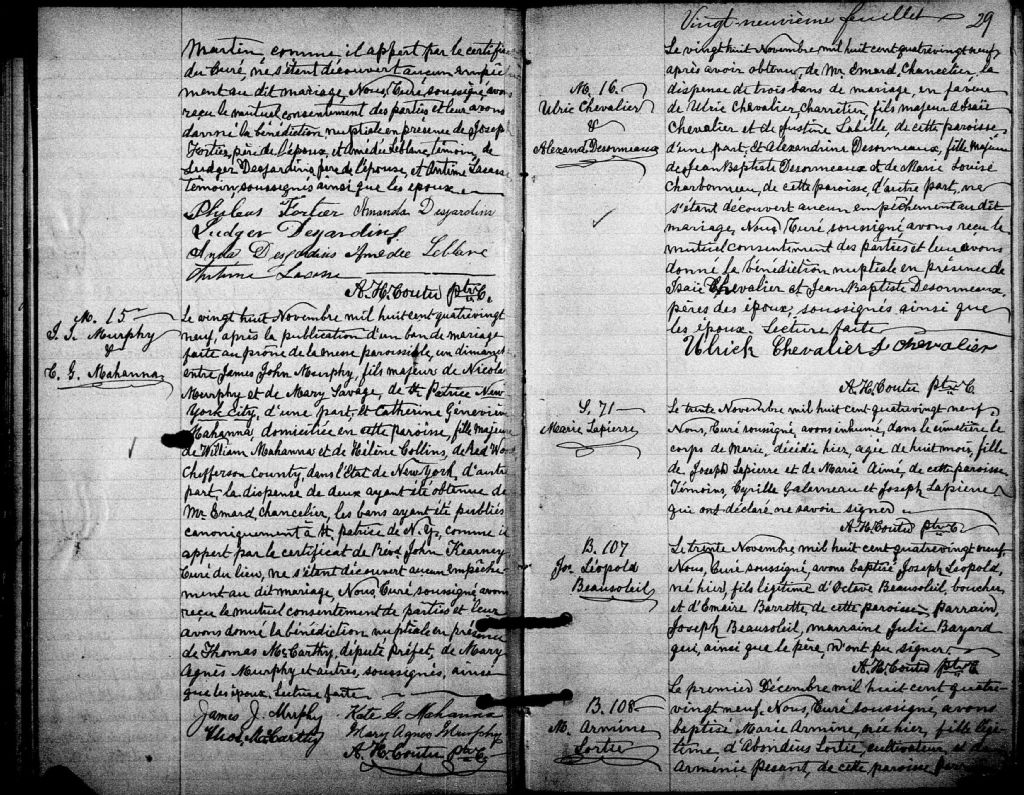 Martin comme il appert par le certificat
du Curé, ne s'étant découvert aucun empêche
ment au dit mariage, Nous, Curé, soussigné avons
reçu le mutuel consentement des parties et leur avons
donné la bénédiction nuptiale en présence de Joseph
Fortier, père de l'époux, et Amédée Leblanc, témoin, de
Ludger Desjardins, père de l'épouse, et Antime Lacasse
témoin, soussignés ainsi que les époux.
Phyleas Fortier Amanda Desjardins
Ludger Desjardins
Amédée Leblanc
Antime Lacasse
A. H. Coutu ptre C.
M. 15
J. J. Murphy
&
C. G. Mahanna
Le vingt huit Novembre mil huit cent quatrevingt
neuf, après la publication d'un ban de mariage
faite au prône de la messe paroissiale, un dimanche
entre James John Murphy, fils majeur de Nicolas
Murphy et de Mary Savage, de St Patrice New
York City, d'une part, et Catherine Génevieve
Mahanna, domiciliée en cette paroisse, fille majeure
de William Mahanna et de Hélène Collins, de Red Wood
Chefferson County, dans l'Etat de New York, d'autre
part, la dispense de deux ayant été obtenue de
Mr. Emard, chancelier, les bans ayant été publiés
canoniquement à St. patrice de N. Y., comme il
appert par le certificat de Révd. John Kearney
Curé du lieu, ne s'étant découvert aucun empêche
ment au dit mariage, Nous, Curé, soussigné avons
reçu le mutuel consentement de parties et leur
avons donné la bénédiction nuptiale en présence
de Thomas McCarthy, député préfet, de Mary
Agnès Murphy et autres, soussignés, ainsi
que les époux. Lecture faite
James J. Murphy Kate G. Mahanna
Thos. McCarthy Mary Agnes Murphy
A. H. Coutu ptre C.
Vingt-neuvième feuillet 29
M. 16.
Ulric Chevalier
&
Alexand Desormeaux
Le vingt huit Novembre mil huit cent quatrevingt neuf,
après avoir obtenu, de Mr. Emard, Chancelier, la
dispense de trois bans de mariage, en faveur
de Ulric Chevalier, Charretier, fils majeur d'Isaïe
Chevalier et de Justine Labille, de cette paroisse,
d'une part, et Alexandrine Desormeaux, fille majeure
de Jean Baptiste Desormeaux et de Marie Louise
Charbonneau, de cette paroisse, d'autre part, ne
s'étant découvert aucun empêchement au dit
mariage, Nous, Curé soussigné avons reçu le
mutuel consentement des parties et leur avons
donné la bénédiction nuptiale en présence de
Isaïe Chevalier et Jean Baptiste Desormeaux,
pères des époux, soussignés ainsi que
les époux. Lecture faite
Ulrick Chevalier I Chevalier
A. H. Coutu ptre C
S. 71
Marie Lapierre
Le trente Novembre mil huit cent quatrevingt neuf,
Nous, Curé soussigné, avons inhumé, dans le cimetière le
corps de Marie, décédée hier, agée de huit mois, fille
de Joseph Lapierre et de Marie Aimé, de cette paroisse
Témoins, Cyrille Galerneau et Joseph Lapierre
qui ont déclaré ne savoir signer.
A. H. Coutu ptre C.
B. 107
Jos. Léopold
Beausoleil
Le trente Novembre mil huit cent quatrevingt neuf
Nous, Curé soussigné, avons baptisé Joseph Léopold,
né hier, fils légitime d'Octave Beausoleil, boucher,
et d'Emaire Barrette, de cette paroisse. Parrain,
Joseph Beausoleil, marraine Julie Bayard
qui, ainsi que le père, n'ont pu signer.
A. H. Coutu ptre C
B. 108
M. Armine
Lortie
Le premier Décembre mil huit cent quatre-
vingt neuf. Nous, Curé soussigné, avons
baptisé Marie Armine, née hier, fille légi-
time d'Abondius Lortie, cultivateur, et de
Arménie Pesant, de cette paroisse